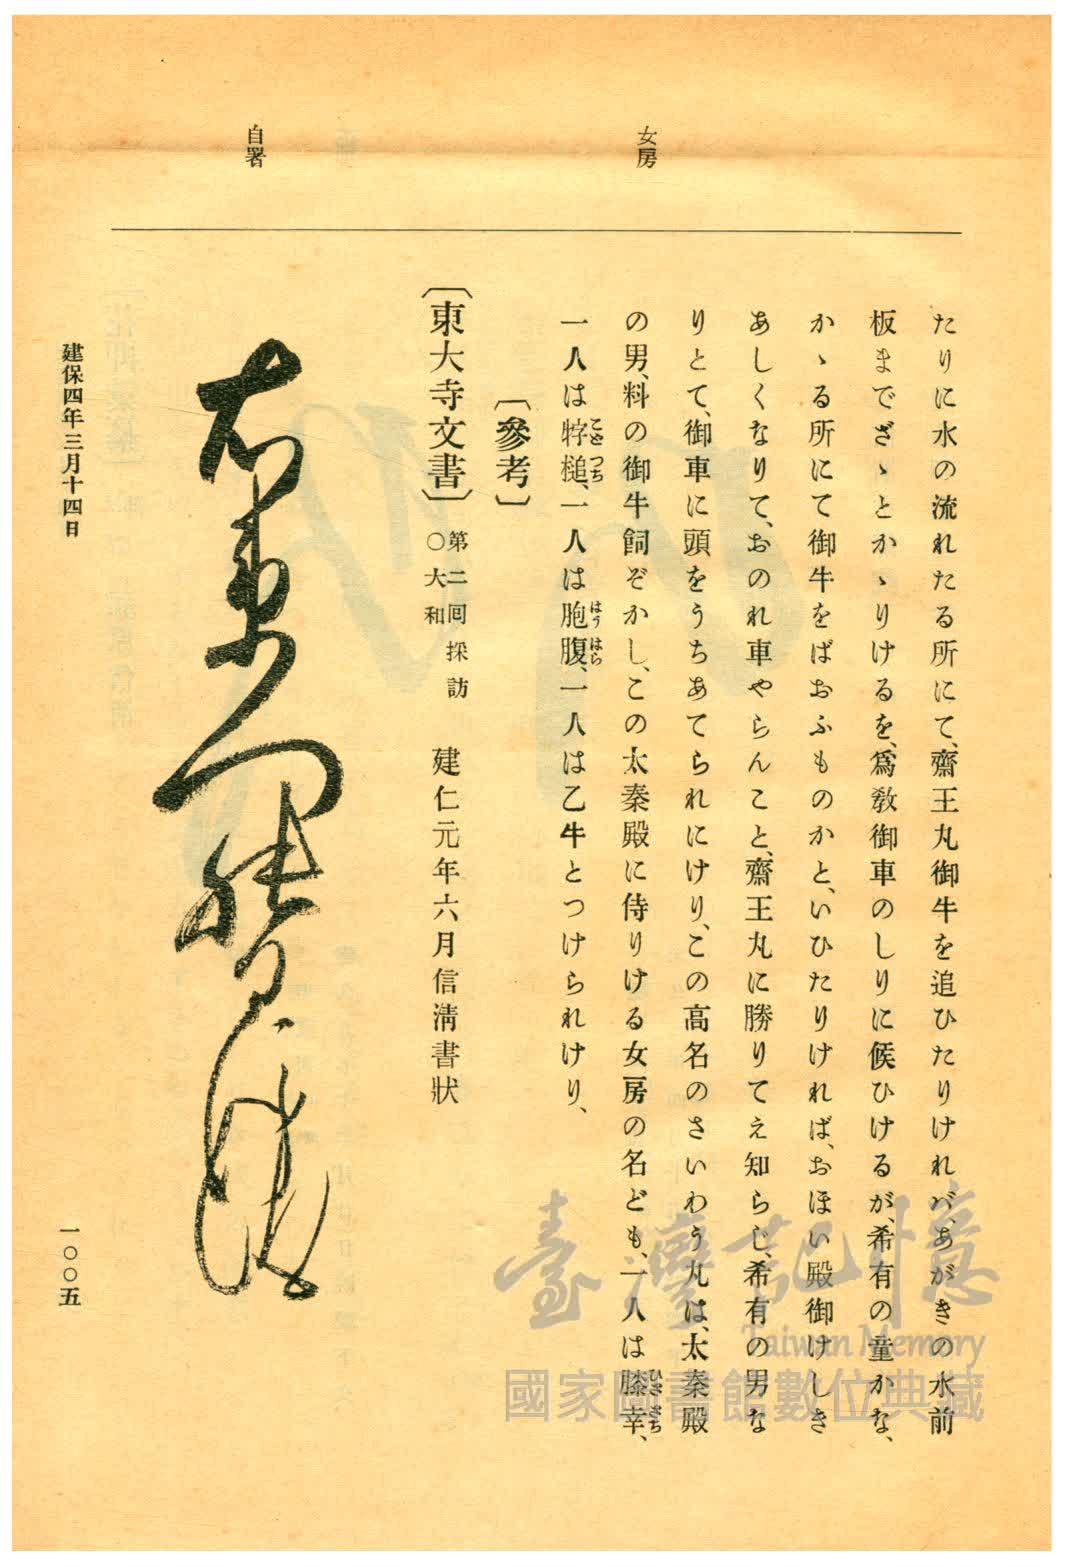 女房
自署
たりに水の流れたる所にて、齋王丸御牛を追ひたりければ、あがきの水前
板までざゝとかゝりけるを、爲教御車のしりに候ひけるが、希有の童かな、
かゝる所にて御牛をばおふものかと、いひたりければ、おほい殿御けしき
あしくなりて、おのれ車やらんこと、齋王丸に勝りてえ知らじ、希有の男な
りとて、御車に頭をうちあてられにけり、この高名のさいわう丸は、太秦殿
の男、料の御牛飼ぞかし、この太秦殿に侍りける女房の名ども、一人は膝幸、
ひさ さち
一人は牸槌、一人は胞腹、一人は乙牛とつけられけり、
こと つち はう はら
〔參考〕
〔東大寺文書〕 第二回採訪 ○大和 建仁元年六月信淸書狀
建保四年三月十四日
一〇〇五
臺灣記憶
Taiwan Memory
國家圖書館數位典藏